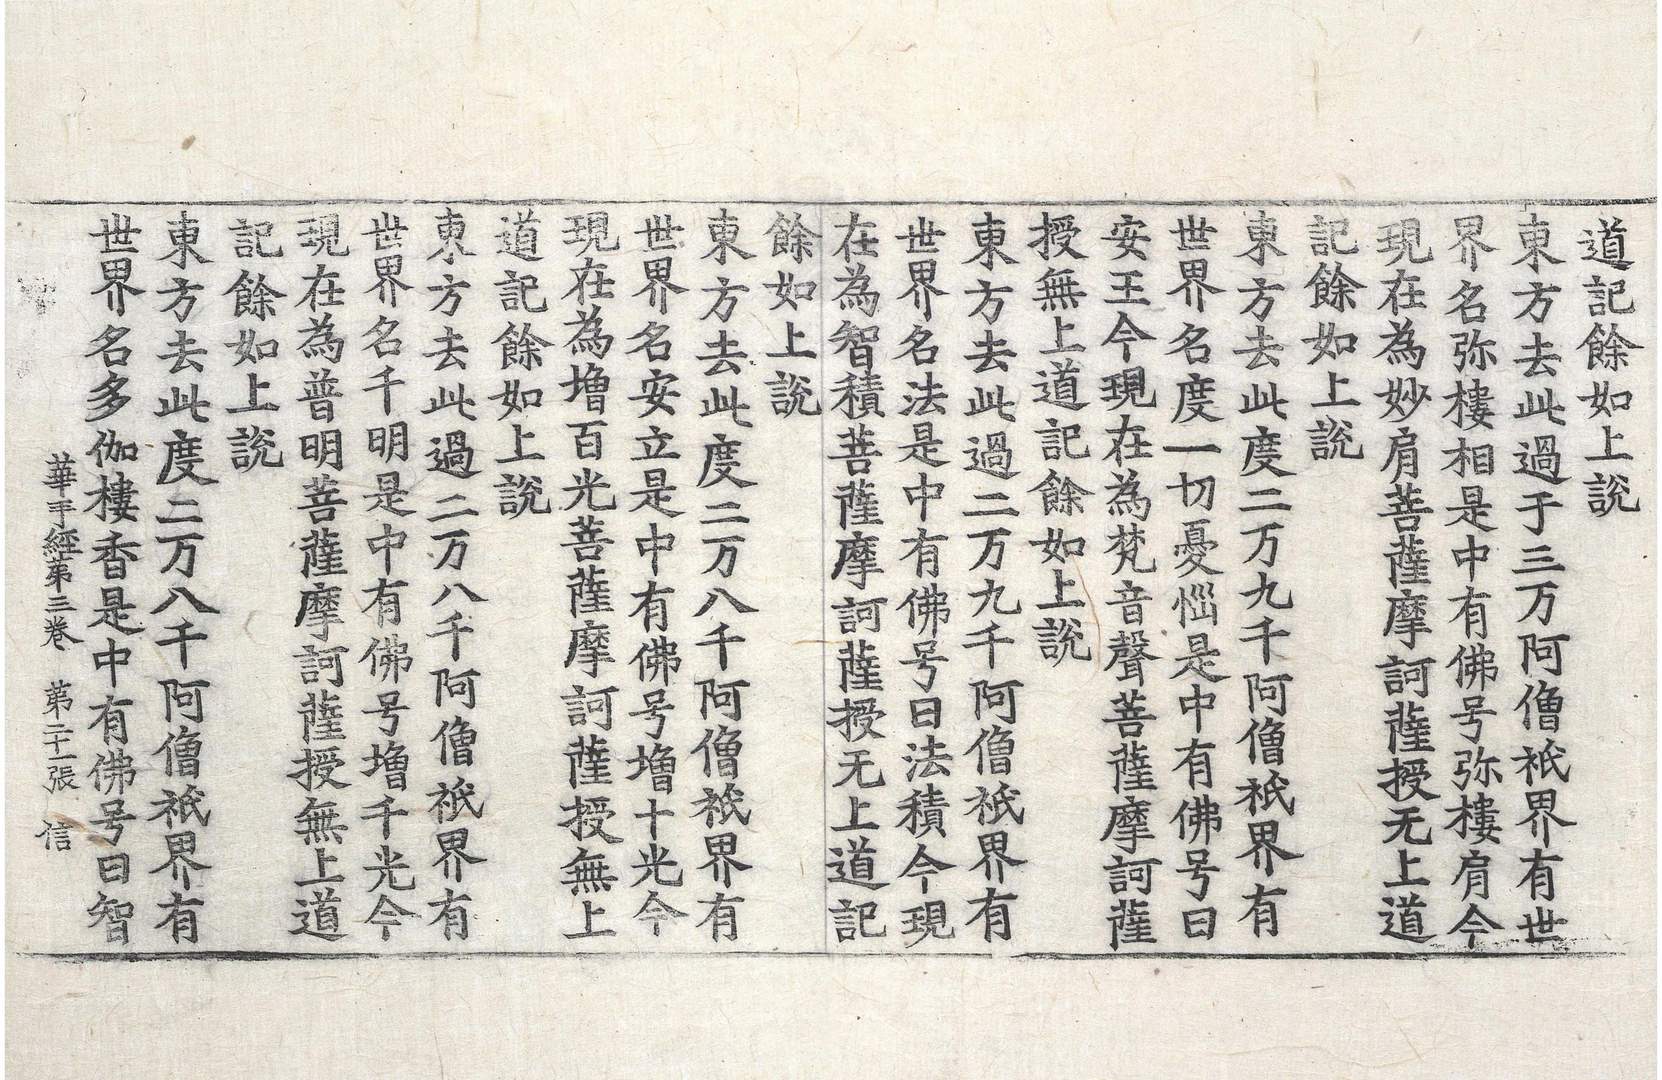 道記餘如上說
東方去此過于三万阿僧祇界有世
界名弥樓相是中有佛号弥樓肩今
現在為妙肩菩薩摩訶薩授无上道
記餘如上說
東方去此度二万九千阿僧祇界有
世界名度一切憂惱是中有佛号曰
安王今現在為梵音聲菩薩摩訶薩
授無上道記餘如上說
東方去此過二万九千阿僧祇界有
世界名法是中有佛号曰法積今現
在為智積菩薩摩訶薩授无上道記
餘如上說
東方去此度二万八千阿僧祇界有
世界名安立是中有佛号增十光今
現在為增百光菩薩摩訶薩授無上
道記餘如上說
東方去此過二万八千阿僧祇界有
世界名千明是中有佛号增千光今
現在為普明菩薩摩訶薩授無上道
記餘如上說
東方去此度二万八千阿僧祇界有
世界名多伽樓香是中有佛号曰智
華手經第三卷 第二十一張 信